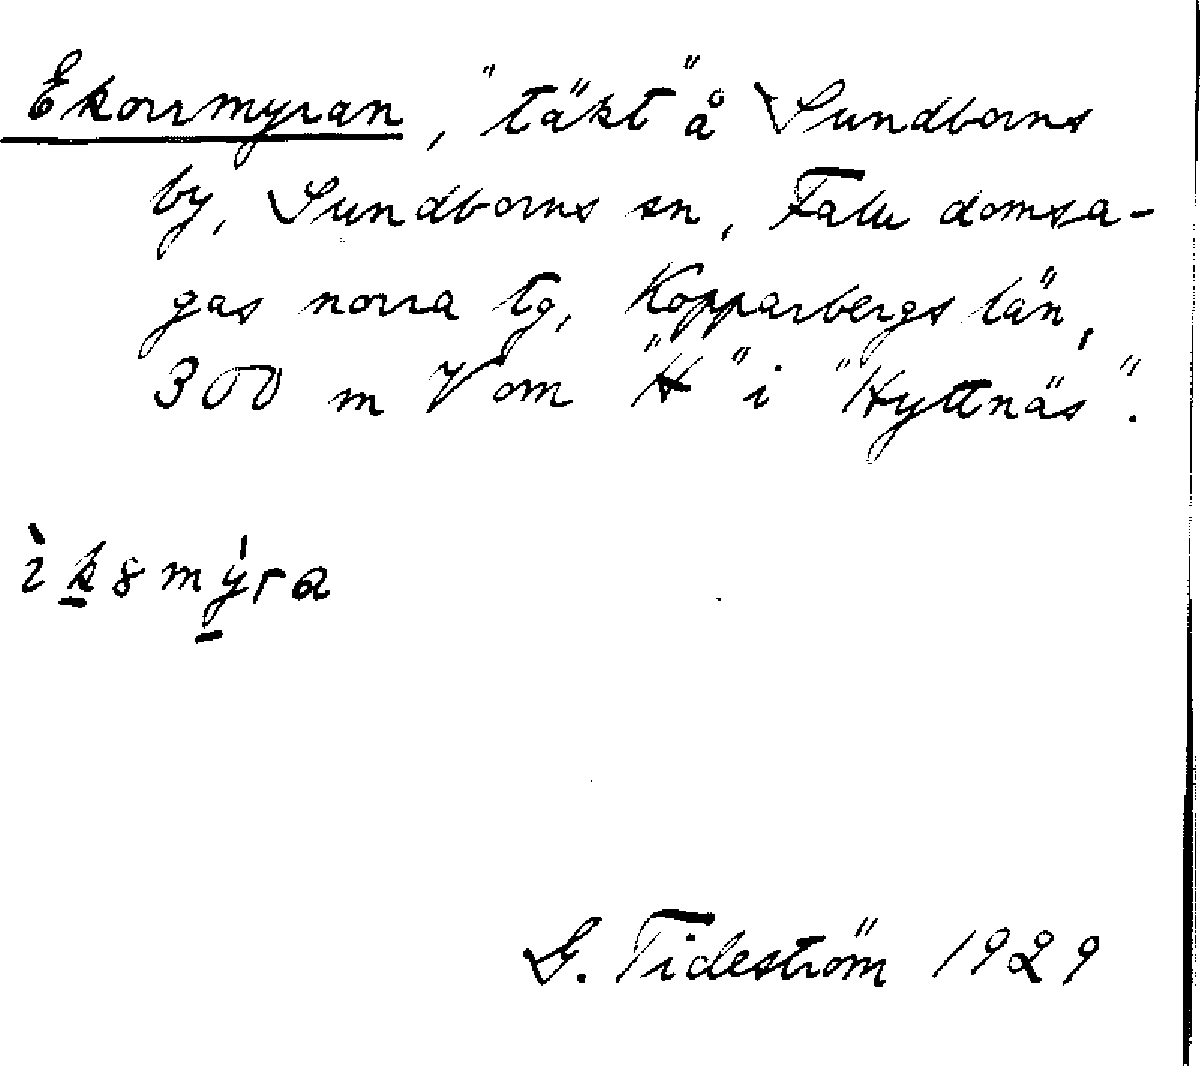 Ekorrmyran, "täkt" å Sundborns
by, Sundborns sn, Falu domsa-
gas norra tg, Kopparbergs län,
300 m V om "H" i "Hyttnäs".
ìk8mýra
G. Tideström 1929